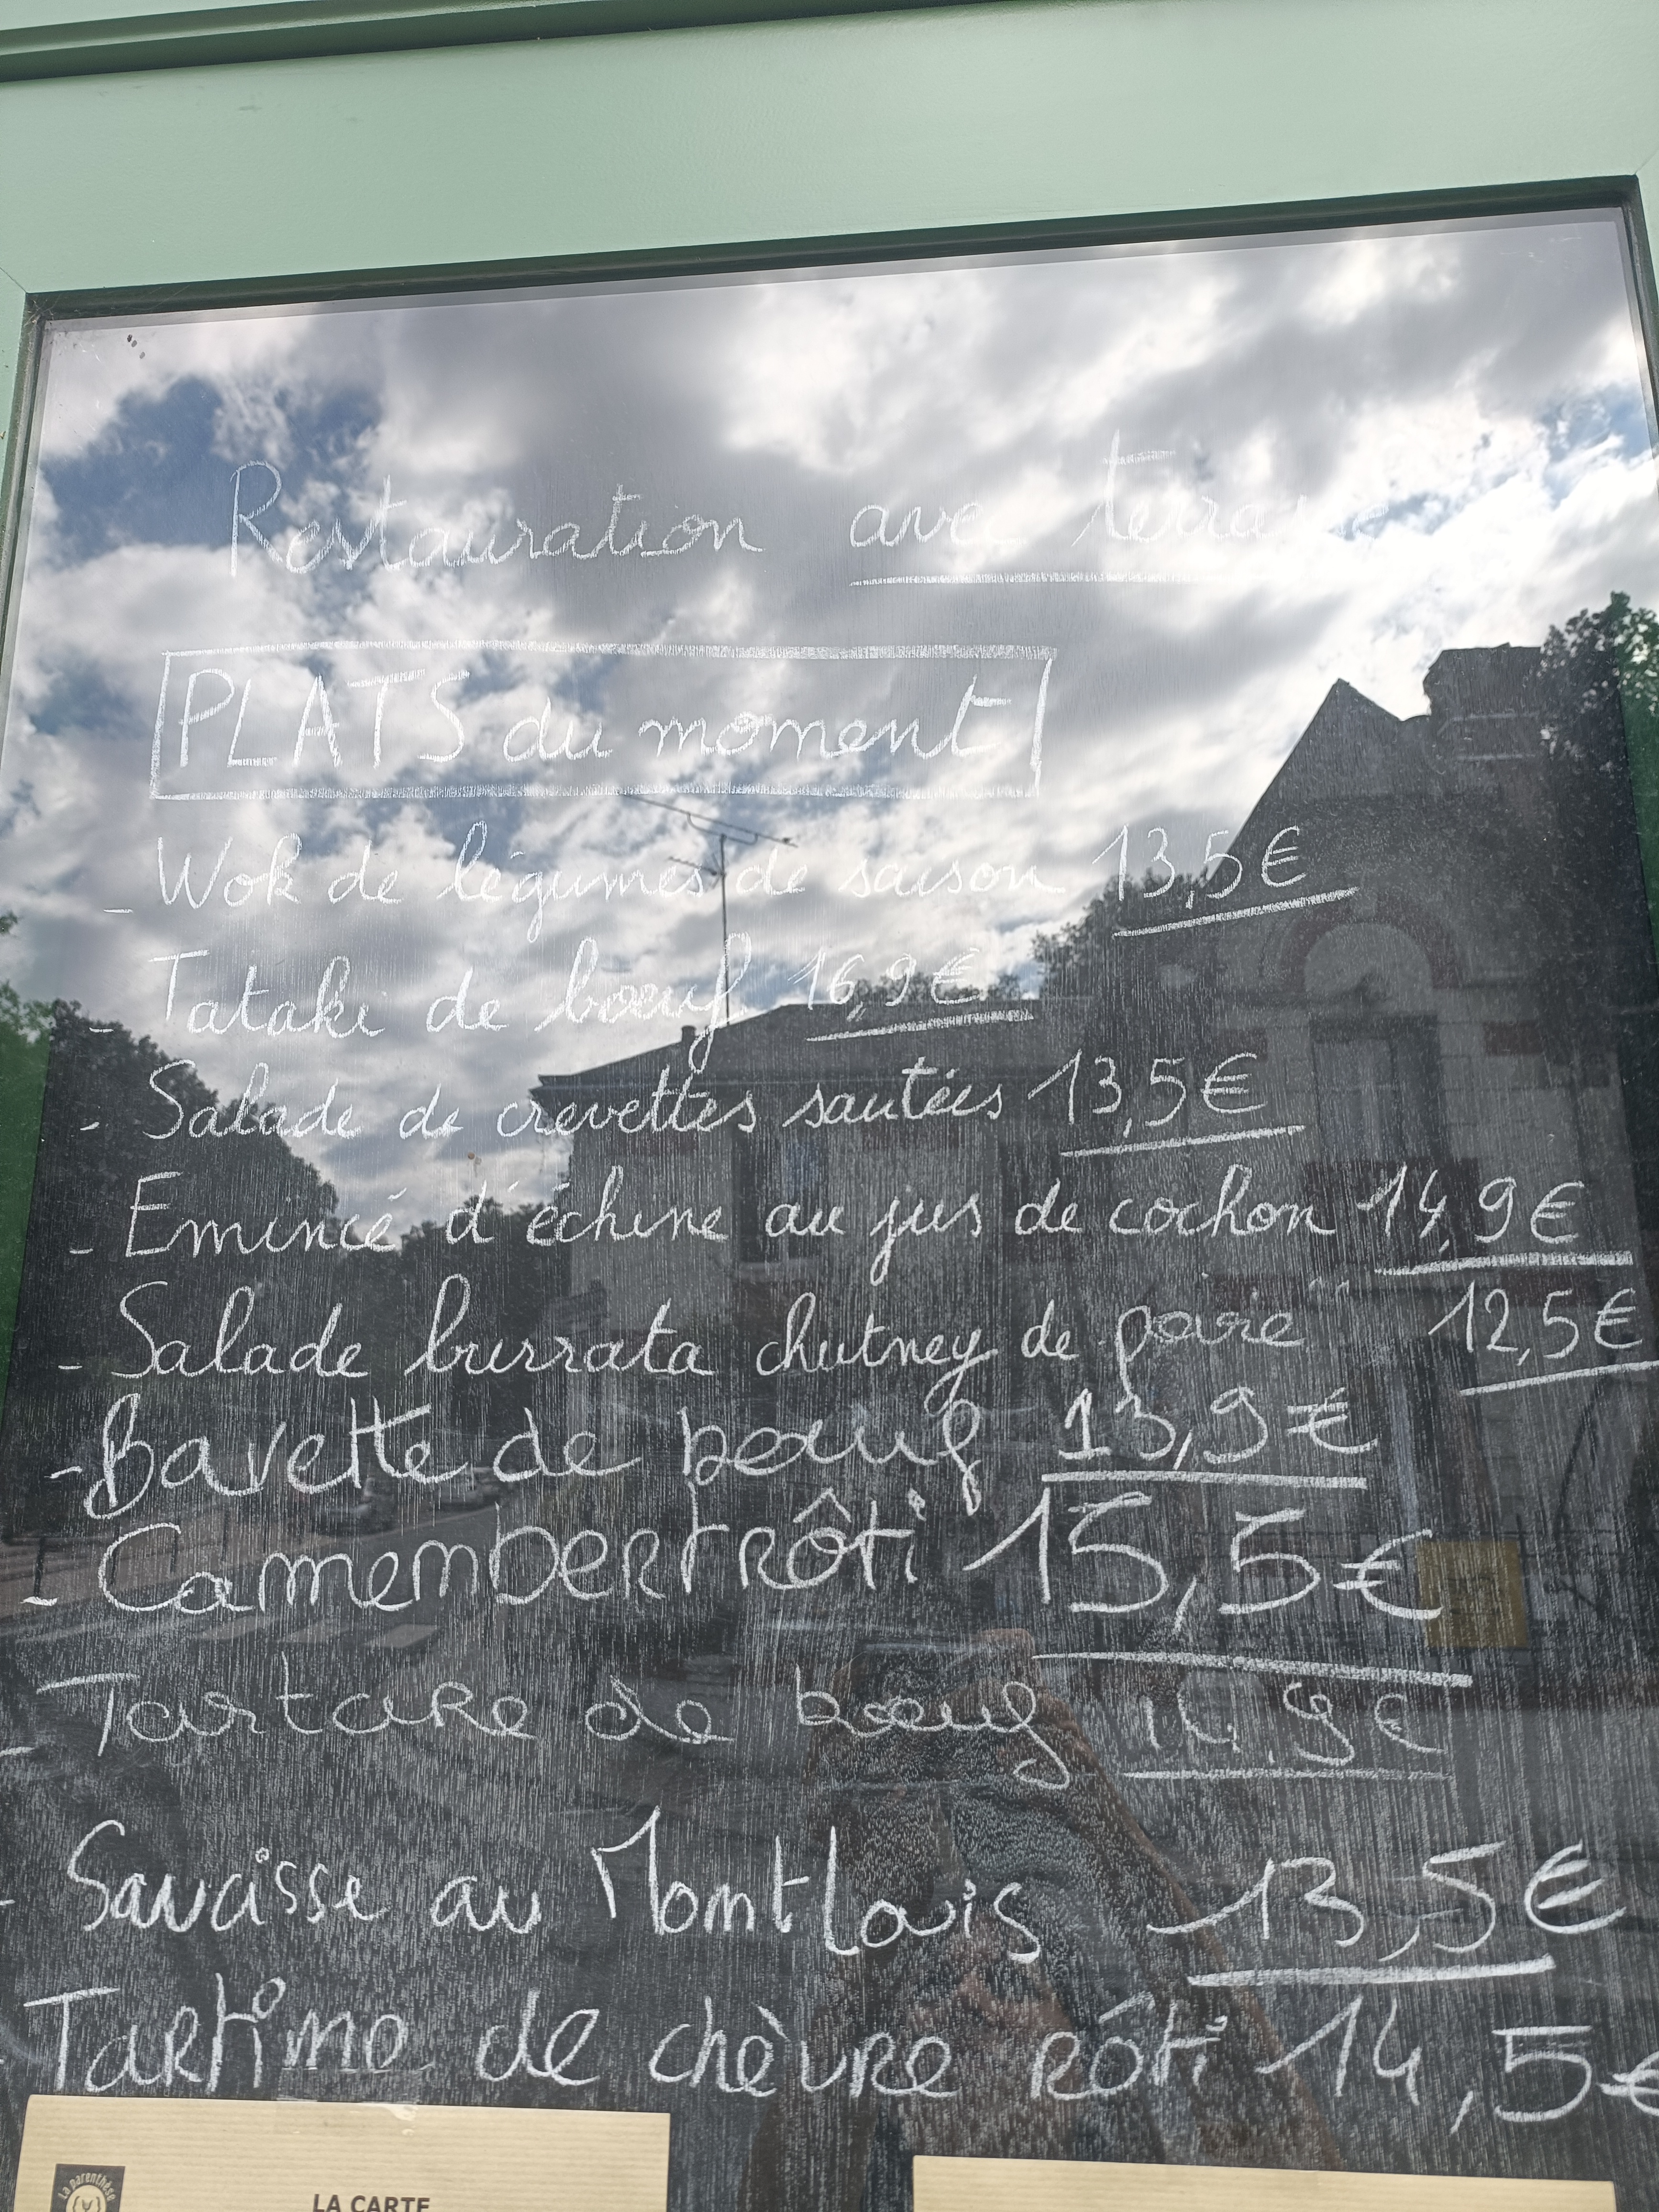 Restauration avec terrasse
PLATS du moment
- Wok de légumes de saison 13,5€
- Tataki de bœuf 16,9€
- Salade de crevettes sautées 13,5€
- Emincé d'échine au jus de cochon 14,9€
- Salade burrata chutney de poire 12,5€
- Bavette de bœuf 13,9€
- Camembert rôti 15,5€
- Tartare de bœuf
- Saucisse au Montlouis 13,5€
- Tartine de chèvre rôti 14,5€
La parenthèse
LA CARTE